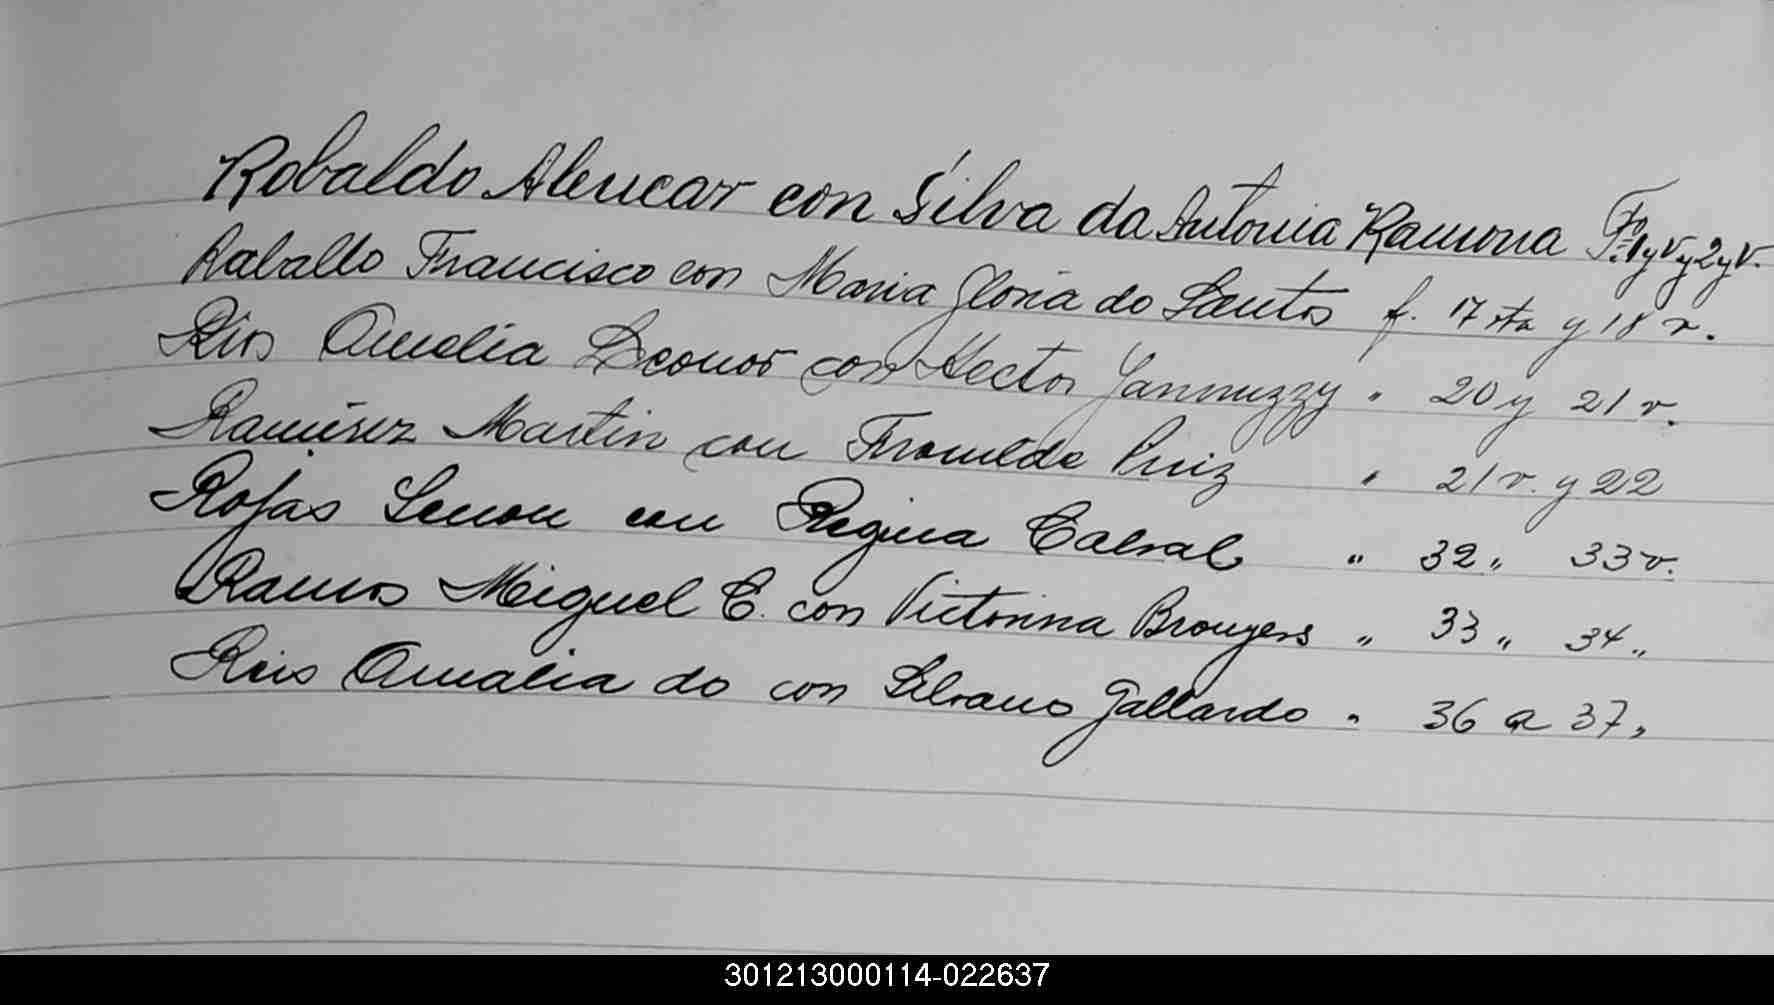 Robaldo Alencar con Silva da Antonia Ramona Fº 1 y v y 2 y v.
Raballo Francisco con Maria Gloria do Santos f. 17 vta y 18 v.
Rios Amelia Leonor con Hector Jannuzzy " 20 y 21 v.
Ramirez Martin con Ruiz " 21 v. y 22
Rojas Senon con Regina Cabral " 32 " 33 v.
Ramos Miguel C. con Victorina Brouyers " 33 " 34 "
Reis Amalia do con Silvano Gallardo " 36 a 37 "
301213000114-022637